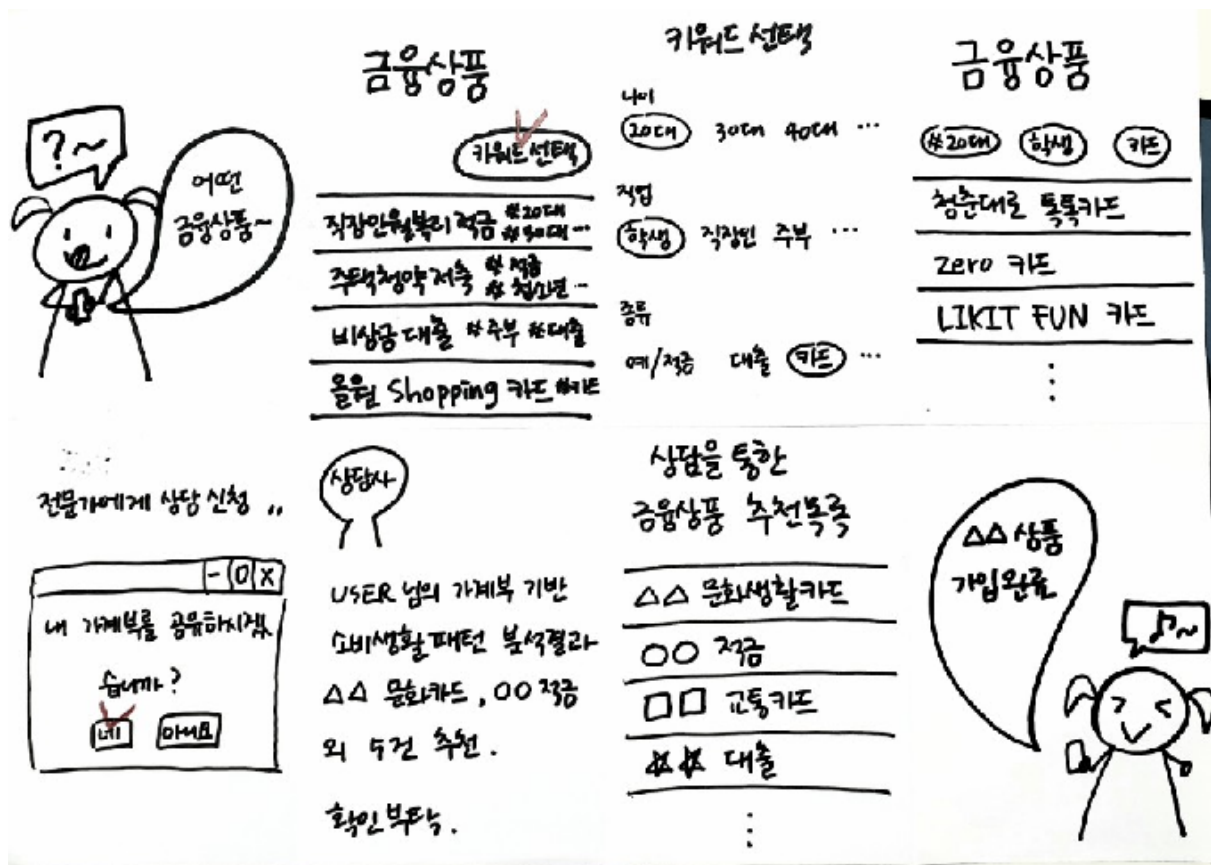 ?~
어떤
금융상품~
금융상품
키워드 선택
직장인월복리 적금 #20대 #30대 …
주택청약저축 #적금 #청소년 …
비상금 대출 #주부 #대출
올원 Shopping 카드 #카드
키워드 선택
나이
20대 30대 40대 …
직업
학생 직장인 주부 …
종류
예/적금 대출 카드 …
금융상품
#20대 학생 카드
청춘대로 톡톡카드
zero 카드
LIKIT FUN 카드
전문가에게 상담 신청 ..
- O X
내 가계부를 공유하시겠
습니까?
네 아니요
상담사
USER 님의 가계부 기반
소비생활패턴 분석결과
△△ 문화카드, OO 적금
외 수건 추천.
확인부탁.
상담을 통한
금융상품 추천목록
△△ 문화생활카드
OO 적금
□□ 교통카드
☆☆ 대출
△△ 상품
가입완료
♪~